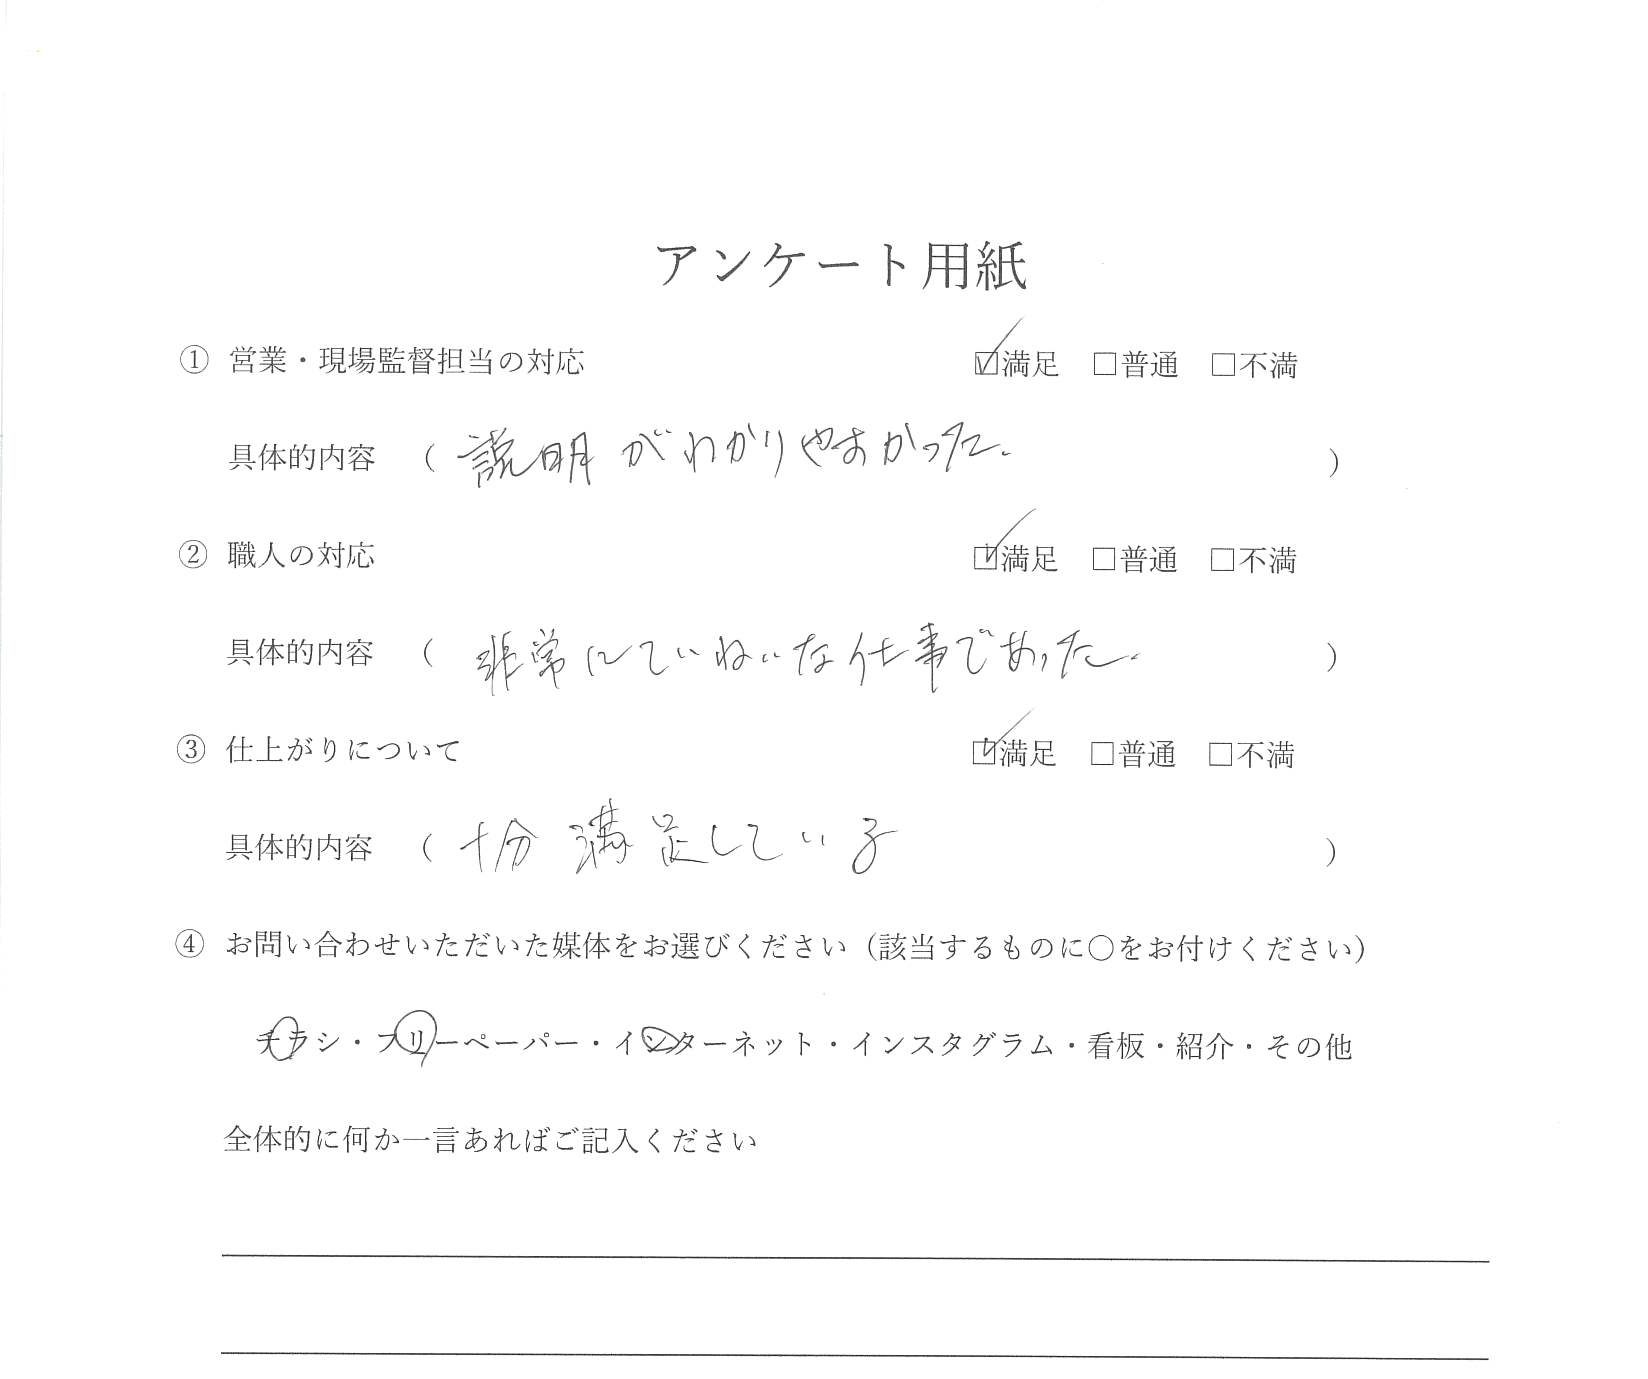 アンケート用紙
① 営業・現場監督担当の対応 ☑満足 □普通 □不満
具体的内容 （ 説明がわかりやすかった. ）
② 職人の対応 ☑満足 □普通 □不満
具体的内容 （ 非常にていねいな仕事であった. ）
③ 仕上がりについて ☑満足 □普通 □不満
具体的内容 （ 十分満足している ）
④ お問い合わせいただいた媒体をお選びください（該当するものに〇をお付けください）
チラシ・フリーペーパー・インターネット・インスタグラム・看板・紹介・その他
全体的に何か一言あればご記入ください